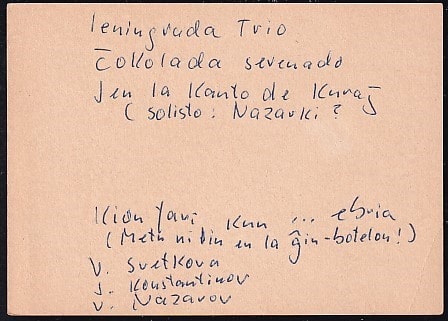 Leningrada Trio
Ĉokolada serenado
Jen la Kanto de Kuraĝ
(solisto: Nazarki?
Kion fari kun ... ebria
(Metu ni ĝin en la ĝin-botelon!)
V. Svetkova
J. Konstantinov
V. Nazarov